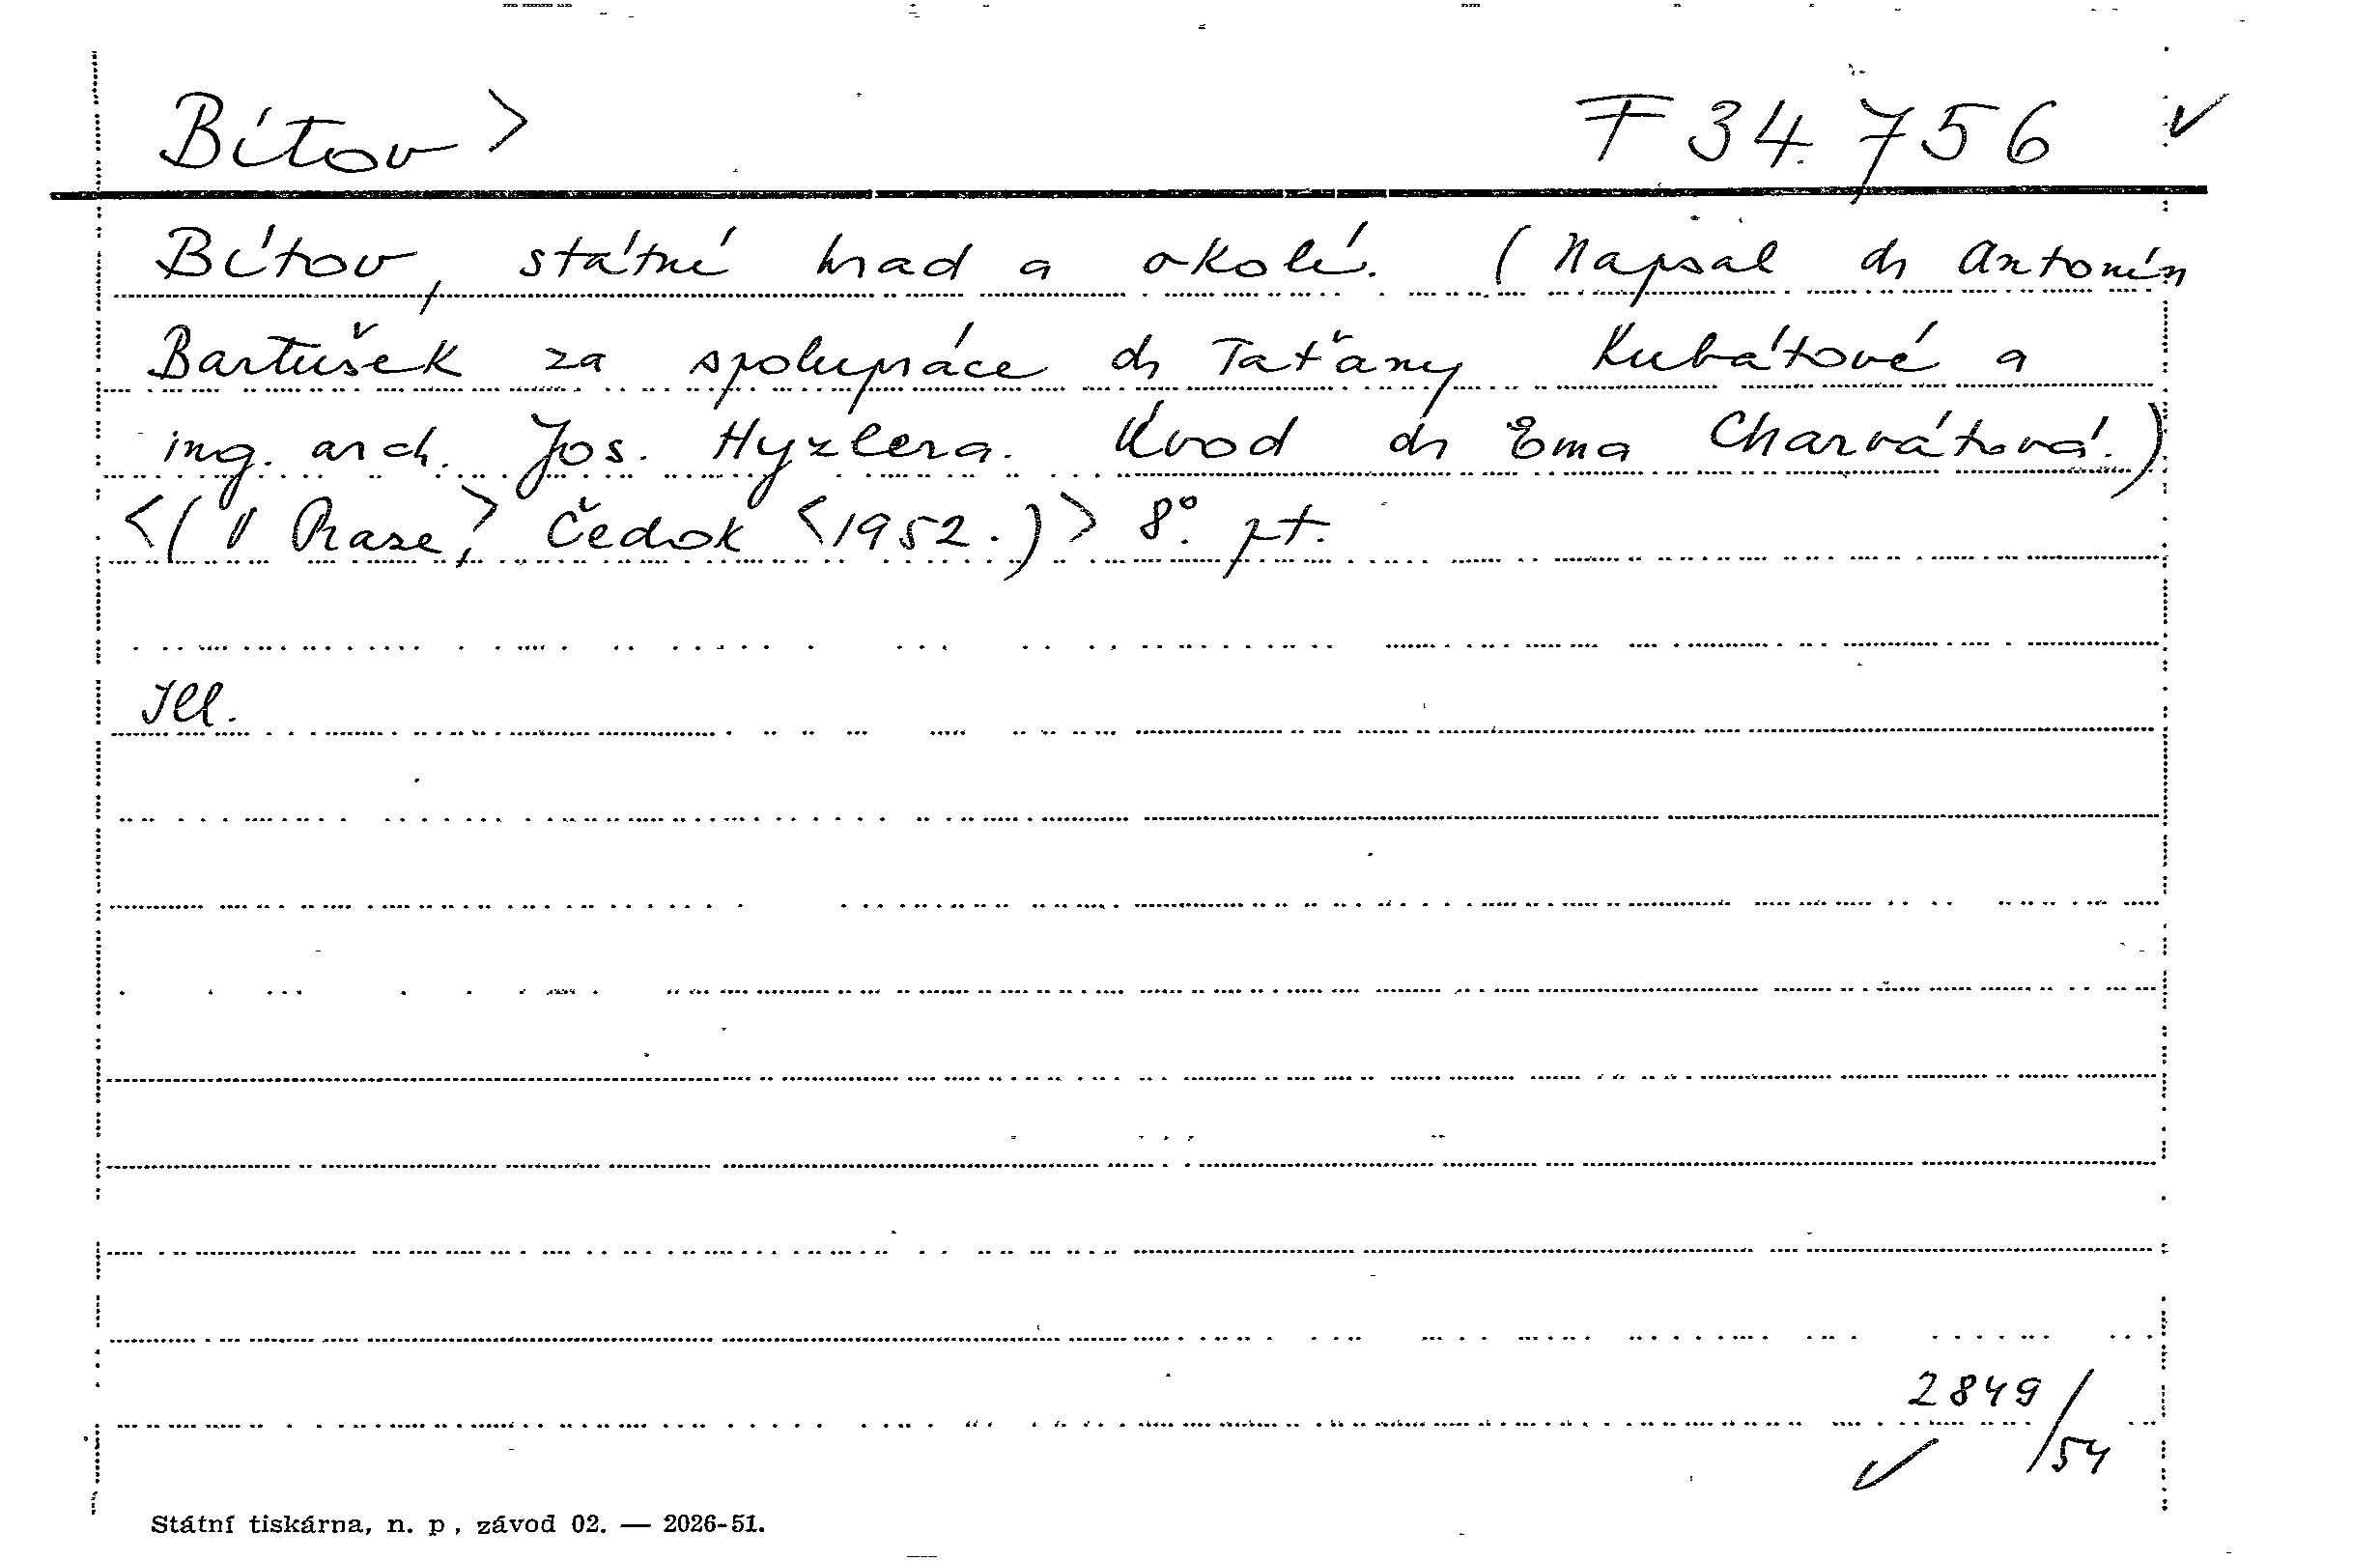 Bítov > F 34.756 ✓
Bítov, státní hrad a okolí. (Napsal dr Antonín
Bartušek za spolupráce dr Taťány Kubátové a
ing. arch. Jos. Hyzlera. Úvod dr Ema Charvátová.)
<(V Praze,> Čedok <1952.)> 8°. pt.
Ill.
2849/54
✓
Státní tiskárna, n. p., závod 02. — 2026-51.